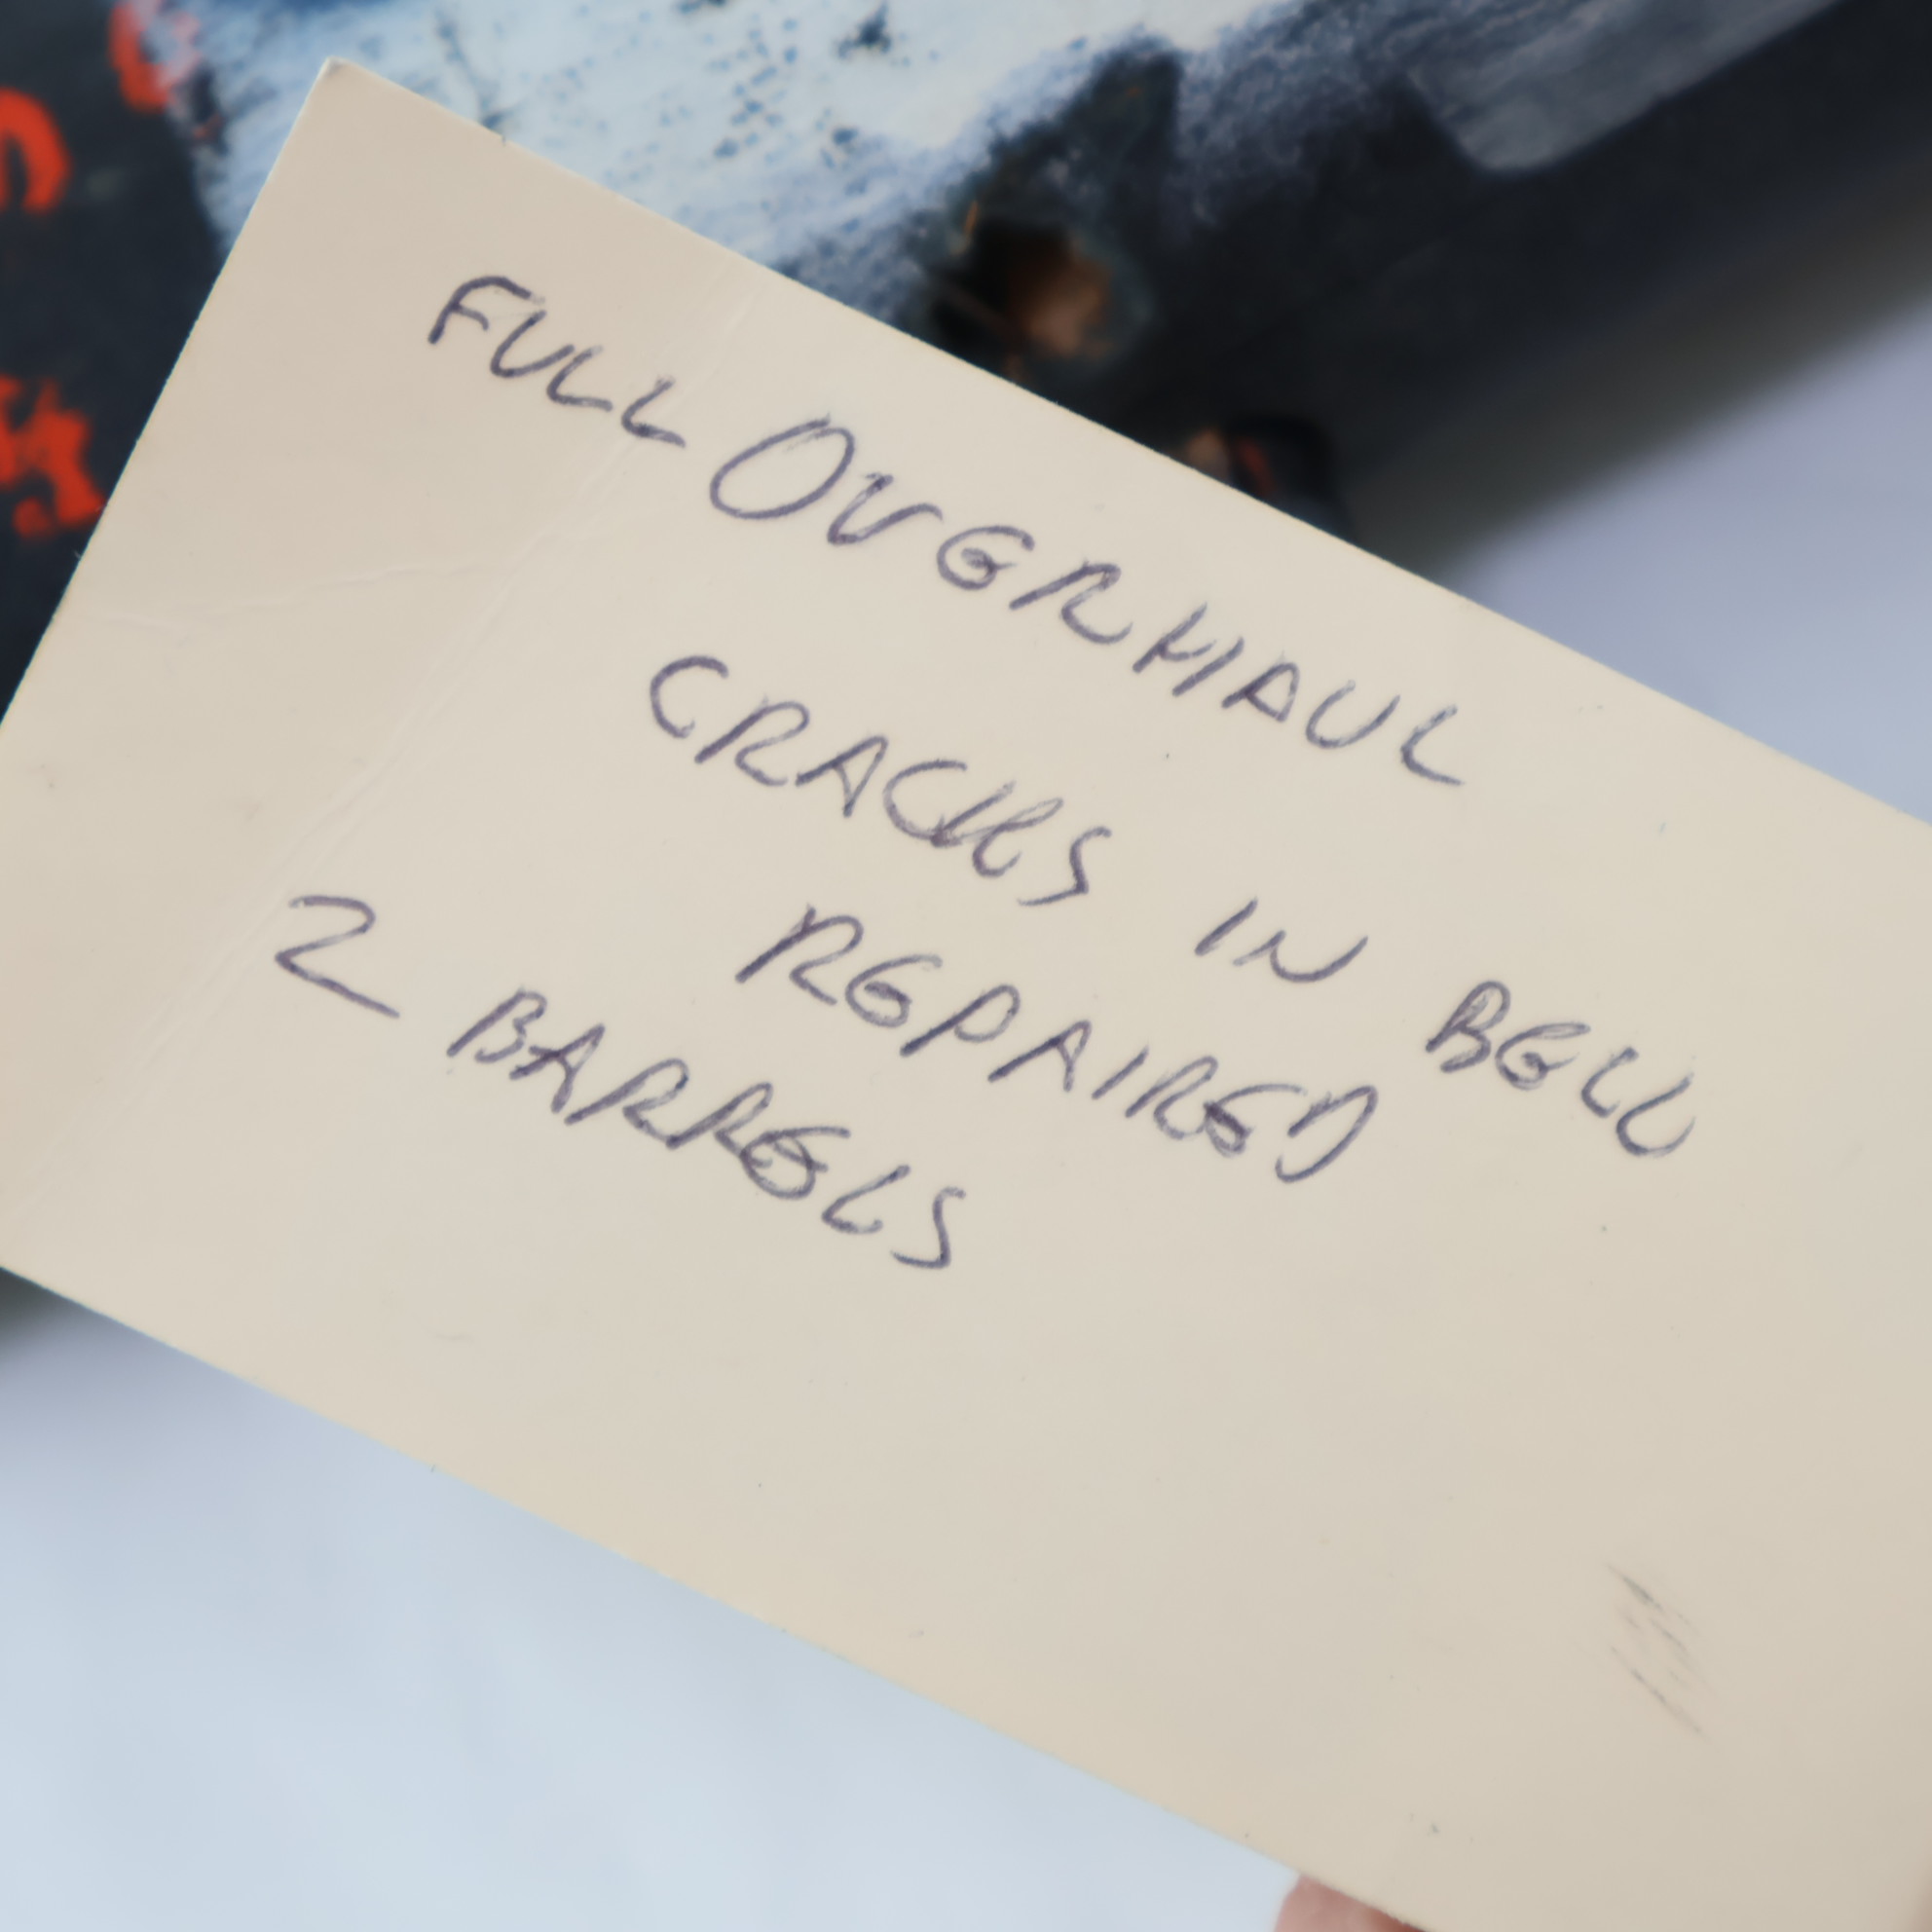 FULL OVERHAUL
CRACKS IN BELL
REPAIRED
2 BARRELS